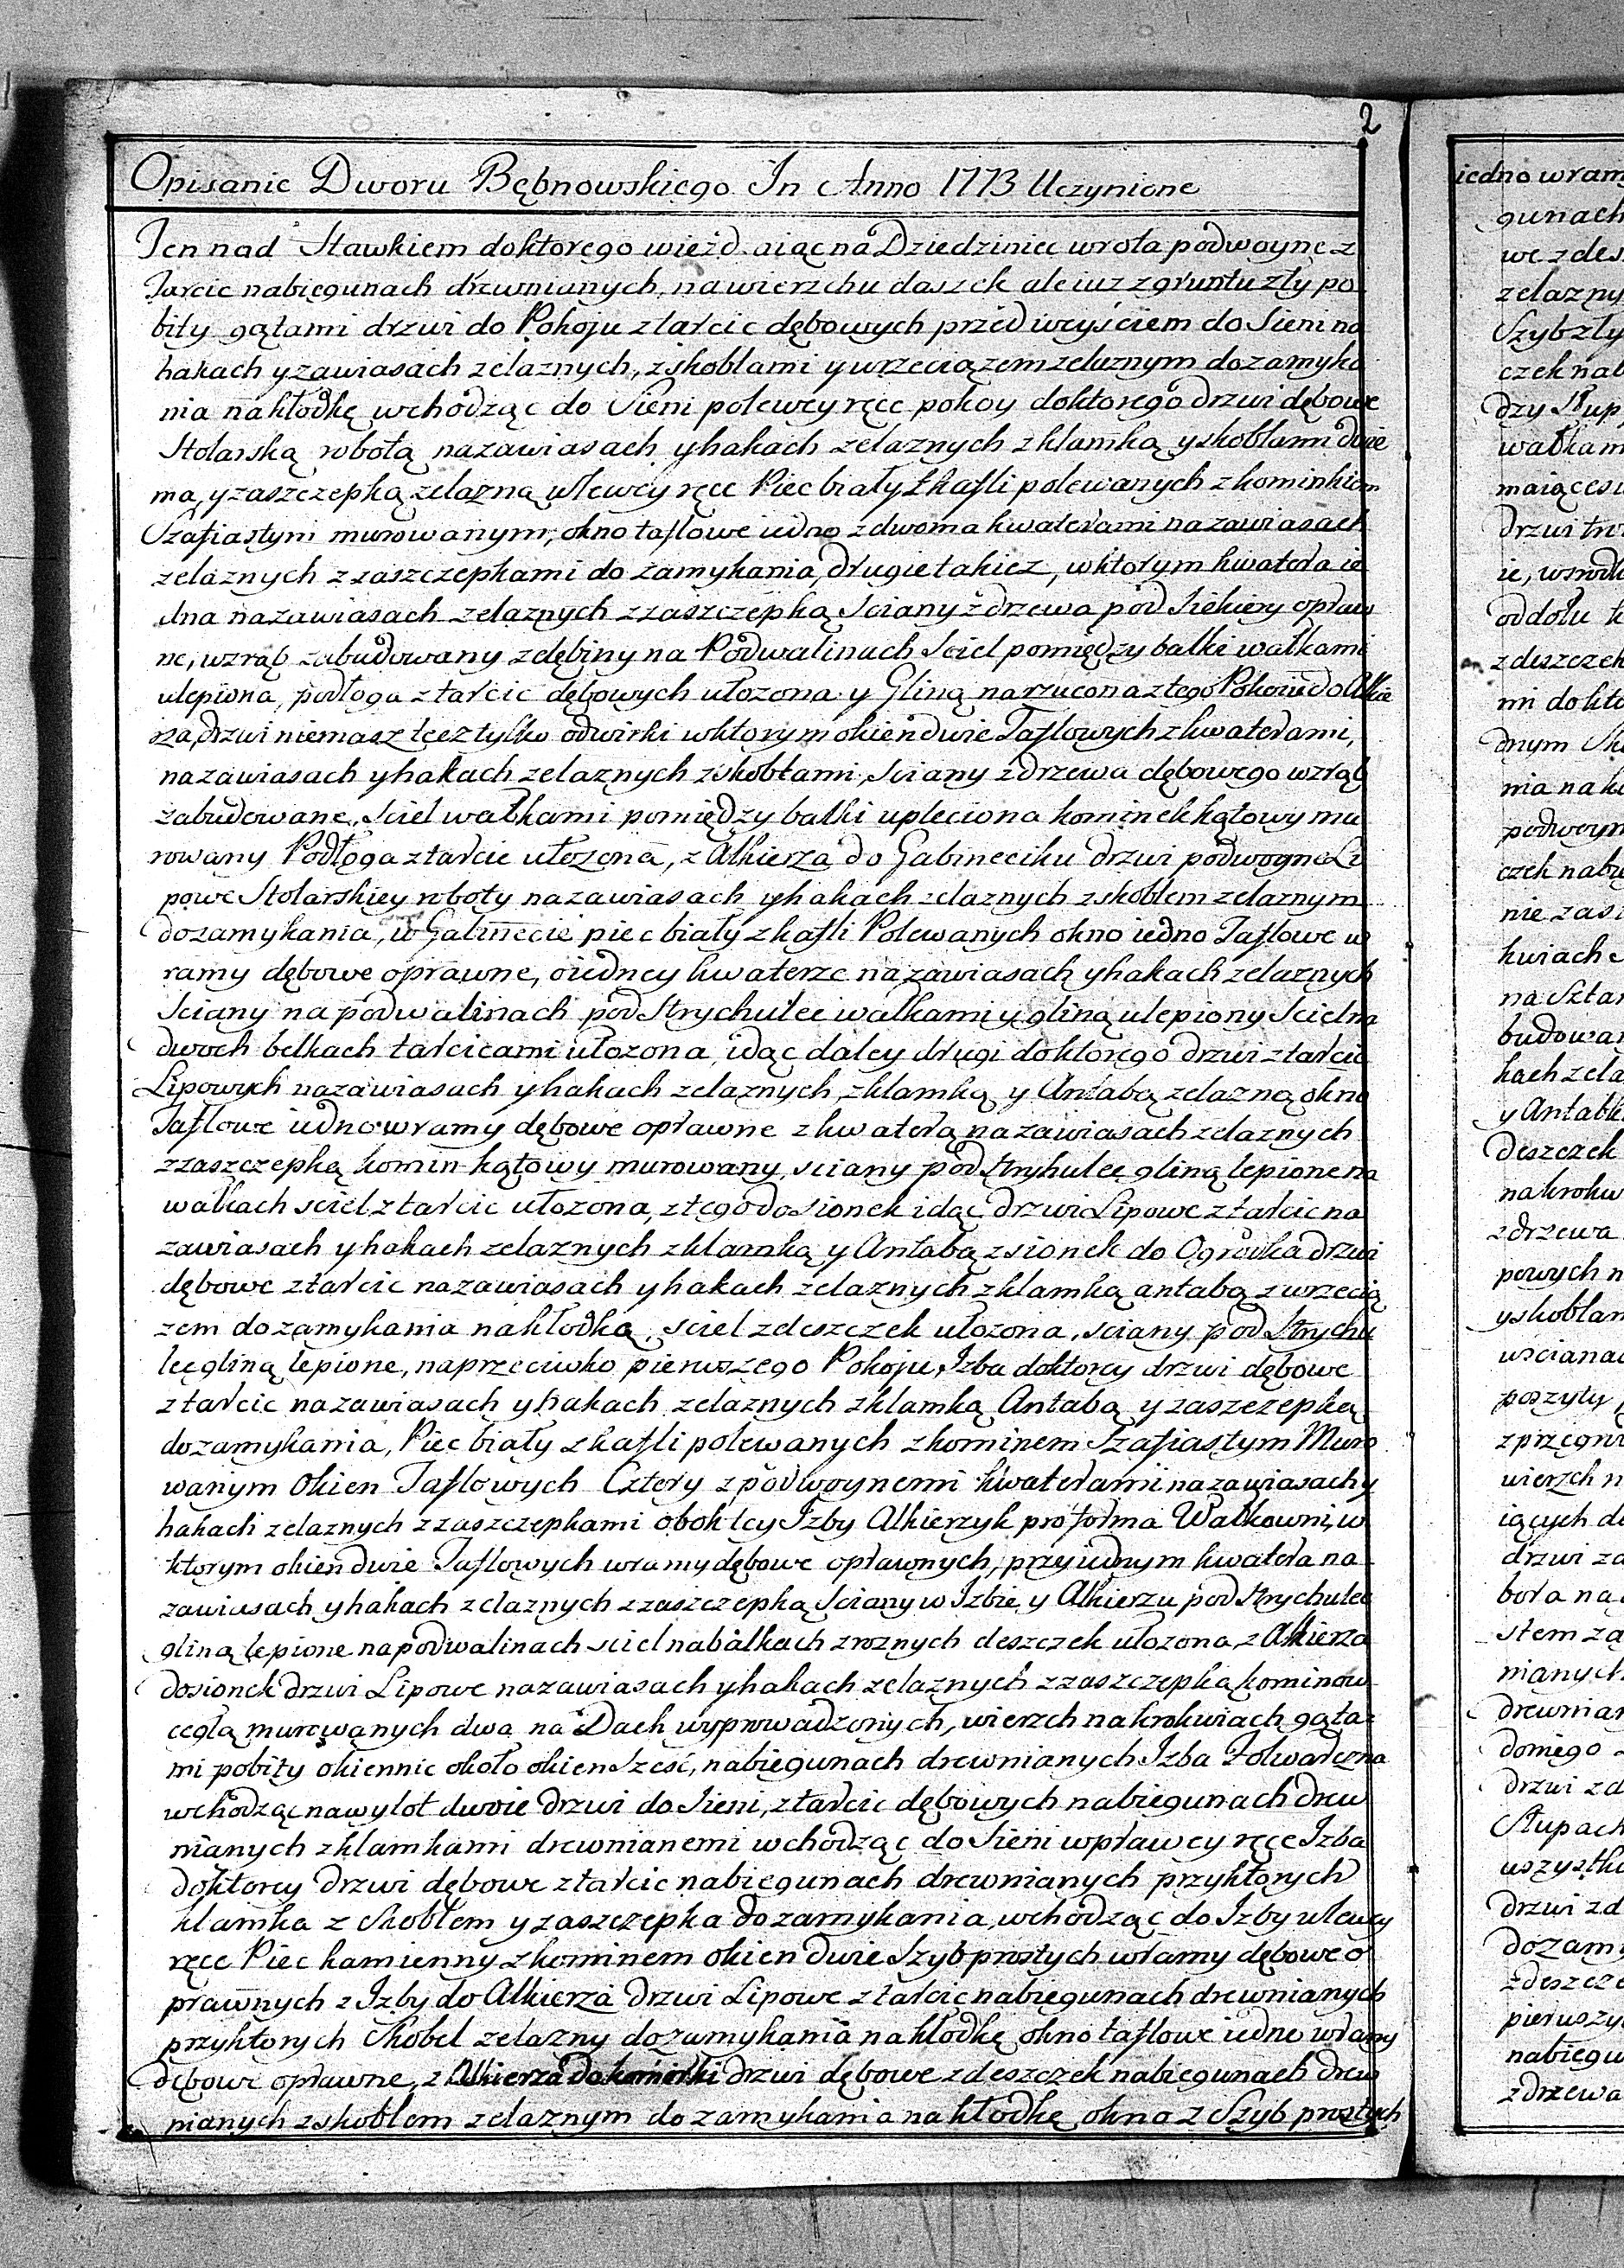 2
Opisanie Dworu Bębnowskiego In Anno 1773 Uczynione
Ten nad Stawkiem doktorego wieżd aiąc na Dziedziniec wrota podwoyne z
Tarcic nabiegunach drzewnianych, nawierzchu daszek ale iuz zgruntu zły po
bity gątami drzwi do Pokoju ztarcic dębowych przed weyściem do Sieni na
hakach yzawiasach zelaznych, zskoblami ywrzeciązem zelaznym dozamyka
nia nakłodkę wchodząc do Sieni polewey ręce pokoy doktorego drzwi dębowe
Stolarską robotą nazawiasach yhakach zelaznych zklamką yskoblami dwie
ma, yzaszczepką zelazną wlewey ręce Piec biały zkafli polewanych zkominkiem
Szafiastym murowanym, okno taflowe iedno zdwoma kwaterami nazawiasach
zelaznych zzaszczepkami do zamykania, drugie takiez, wktorym kwatera ie
dna nazawiasach zelaznych zzaszczepką Sciany zdrzewa pod Siekiery opraw
ne, wzrąb zabudowany zdębiny na Podwalinach Sciel pomiędzy balki wałkami
ulepiona, podłoga ztarcic dębowych ułozona y Gliną narzucona ztego Pokoiu do Alkie
rza, drzwi niemasz tęcz tylko odwirki wktorym okien dwie Taflowych zkwaterami,
nazawiasach yhakach zelaznych zskobłami, sciany zdrzewa dębowego wzrąb
zabudowane, sciel wałkami pomiędzy balki upleciona kominek kątowy mu
rowany Podłoga ztarcic ułozona, z Alkierza do Gabineciku drzwi podwoyne Li
powe Stolarskiey roboty nazawiasach yhakach zelaznych zskoblem zelaznym
dozamykania, w Gabinecie piec biały zkafli Polewanych okno iedno Taflowe w
ramy dębowe oprawne, oiedney kwaterze nazawiasach yhakach zelaznych
Sciany na podwalinach pod Strychulec wałkami y gliną ulepiony Scielna
dwoch belkach tarcicami ułozona, idąc daley drugi doktorego drzwi ztarcic
Lipowych nazawiasach yhakach zelaznych, zklamką y Antabą zelazną okno
Taflowe iedno wramy dębowe oprawne zkwaterą nazawiasach zelaznych
zzaszczepką komin kątowy murowany, sciany pod Stryhulec gliną lepione na
wałkach sciel ztarcic ułozona, ztego do sionek idąc drzwi Lipowe ztarcic na
zawiasach yhakach zelaznych zklamką y Antabą zsionek do Ogrodka drzwi
dębowe ztarcic nazawiasach yhakach zelaznych zklamką antabą zwrzecią
zem dozamykania nakłodką, sciel zdeszczek ułozona, sciany pod Strychu
lec gliną lepione, naprzeciwko pierwszego Pokoju, Izba doktorey drzwi dębowe
ztarcic nazawiasach yhakach zelaznych zklamką Antabą yzaszczepką
dozamykania, Piec biały zkafli polewanych zkominem Szafiastym Muro
wanym Okien Taflowych Cztery zpodwoynemi kwaterami nazawiasach y
hakach zelaznych zzaszczepkami obok tey Izby Alkierzyk pro forma Wałkowni, w
ktorym okien dwie Taflowych wramy dębowe oprawnych, przy iednym kwatera na
zawiasach yhakach zelaznych zzaszczepką Sciany w Izbie y Alkierzu pod Strychulec
gliną lepione napodwalinach sciel nabalkach zroznych deszczek ułozona, z Alkierza
dosionek drzwi Lipowe nazawiasach yhakach zelaznych zzaszczepką kominow
cegłą murowanych dwa na Dach wyprowadzonych, wierzch nakrokwiach gąta
mi pobity okiennic około okien Szesć, nabiegunach drewnianych Izba Folwarczna
wchodząc nawylot dwoie drzwi do Sieni, ztarcic dębowych nabiegunach drew
nianych zklamkami drewnianemi wchodząc do Sieni wprawey ręce Izba
doktorey drzwi dębowe ztarcic nabiegunach drewnianych przyktorych
klamka z Skoblem yzaszczepka dozamykania, wchodząc do Izby wlewey
ręce Piec kamienny zkominem okien dwie Szyb prostych wramy dębowe o
prawnych z Izby do Alkierza drzwi Lipowe ztarcic nabiegunach drewnianych
przyktorych Skobel zelazny dozamykania nakłodkę okno taflowe iedno wramy
dębowe oprawne, z Alkierza do komorki drzwi dębowe zdeszczek nabiegunach drew
nianych zskoblem zelaznym do zamykania nakłodkę, okno z Szyb prostych